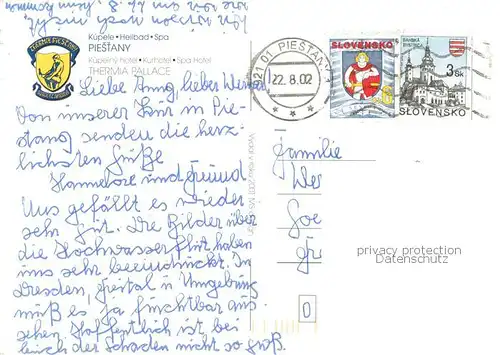 Kúpele • Heilbad • Spa
PIEŠŤANY
Kúpeľný hotel • Kurhotel • Spa Hotel
THERMIA PALLACE
921 01 PIEŠŤANY
22.8.02
SLOVENSKO
BANSKÁ BYSTRICA
3 Sk
SLOVENSKO
Liebe Anny, lieber Werner
Von unserer Kur in Pie-
stany senden die herz-
lichsten Grüße
Hannelore und
Uns gefällt es wieder
sehr gut. Die Bilder über
die Hochwasserflut haben
uns sehr beeindruckt. In
Dresden, Freital u Umgebung
muß es ja furchtbar aus-
sehen Hoffentlich ist bei
Euch der Schaden nicht so groß.
Familie
Wer
privacy protection
Datenschutz